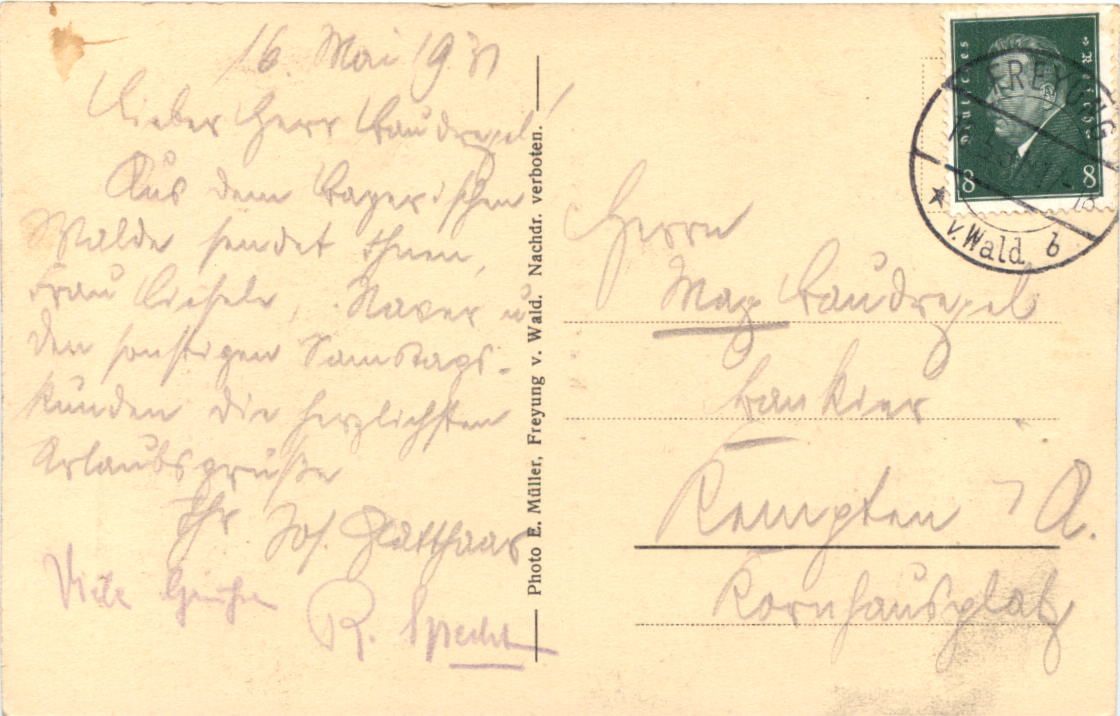 16. Mai 1931
Lieber Herr Baudrexel!
Aus dem Bayerischen
Walde sendet Ihnen,
Frau Liesele, Xaver u
den sonstigen Samstags-
kunden die herzlichsten
Urlaubsgrüße
Ihr Jos. Glatthaar
Viele Grüße
R. Specht
Photo E. Müller, Freyung v. Wald. Nachdr. verboten.
Deutsches Reich
8 8
FREYUNG
v. Wald b
Herrn
Max Baudrexel
Bankier
Kempten i A.
Kornhausplatz